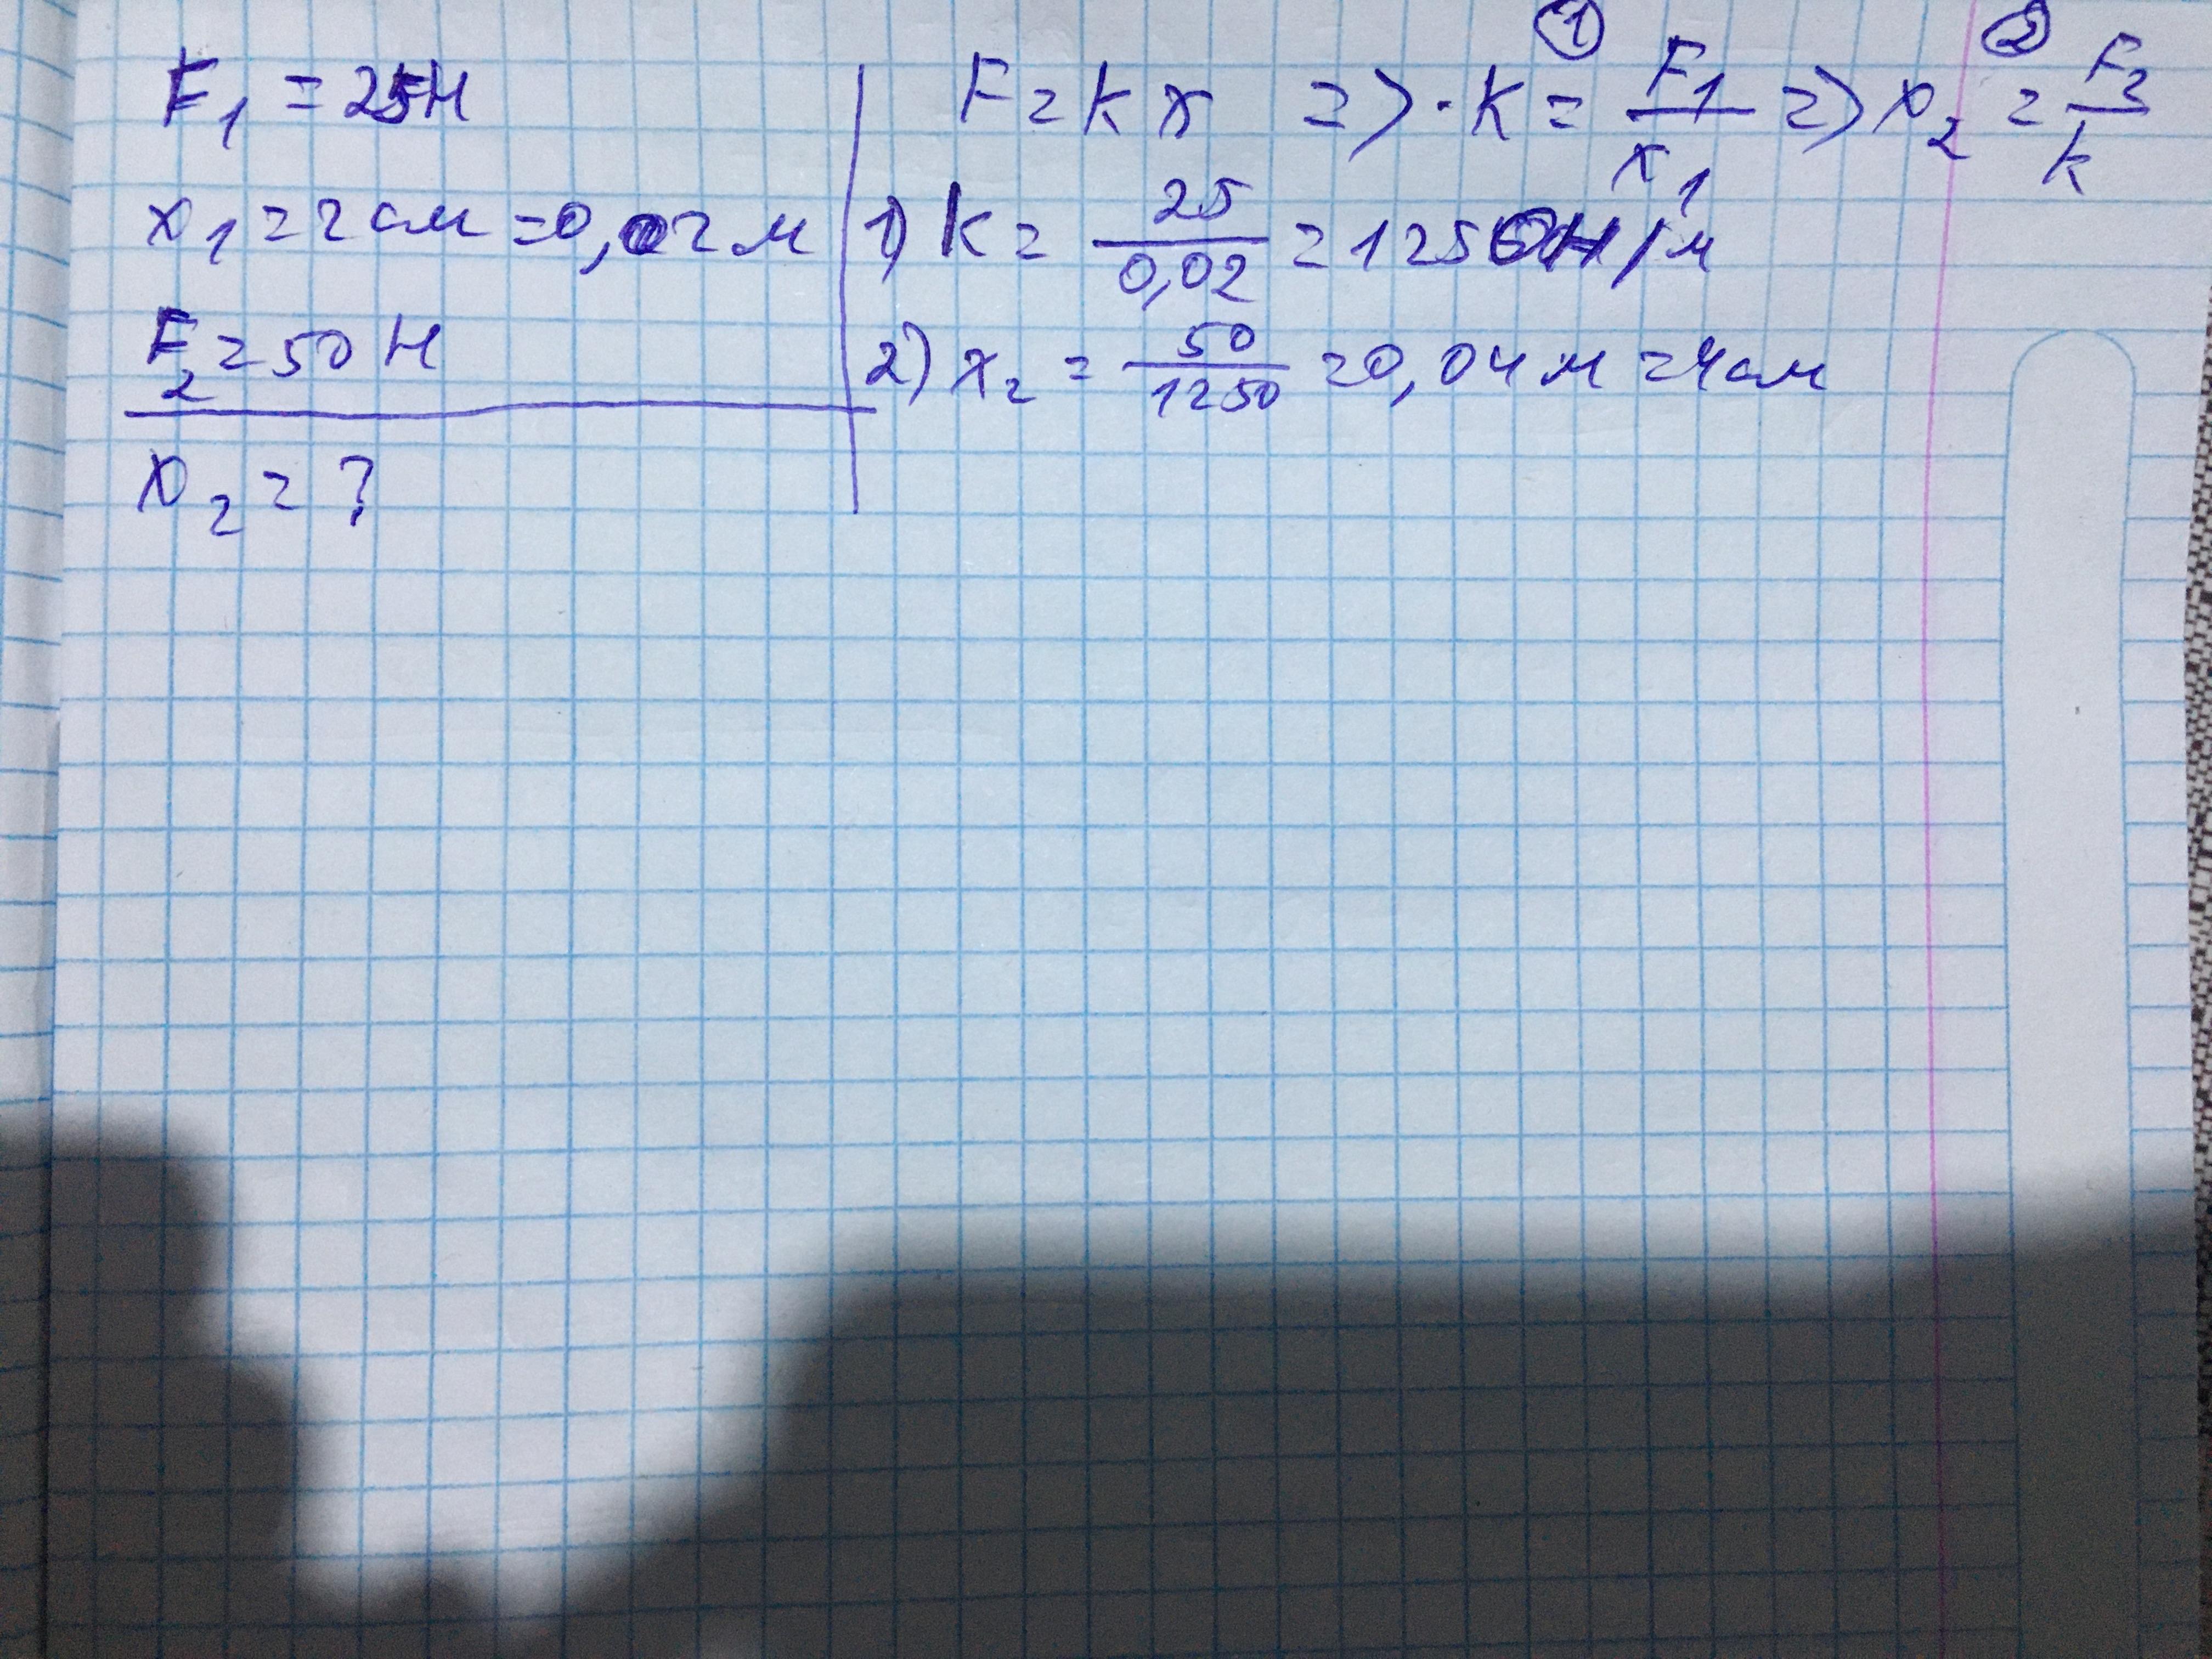 F₁ = 25Н
x₁ = 2 см = 0,02 м
F₂ = 50 Н
x₂ = ?
① ②
F = k x => · k = F₁/x₁ => x₂ = F₂/k
1) k = 25/0,02 = 1250Н/м
2) x₂ = 50/1250 = 0,04 м = 4 см